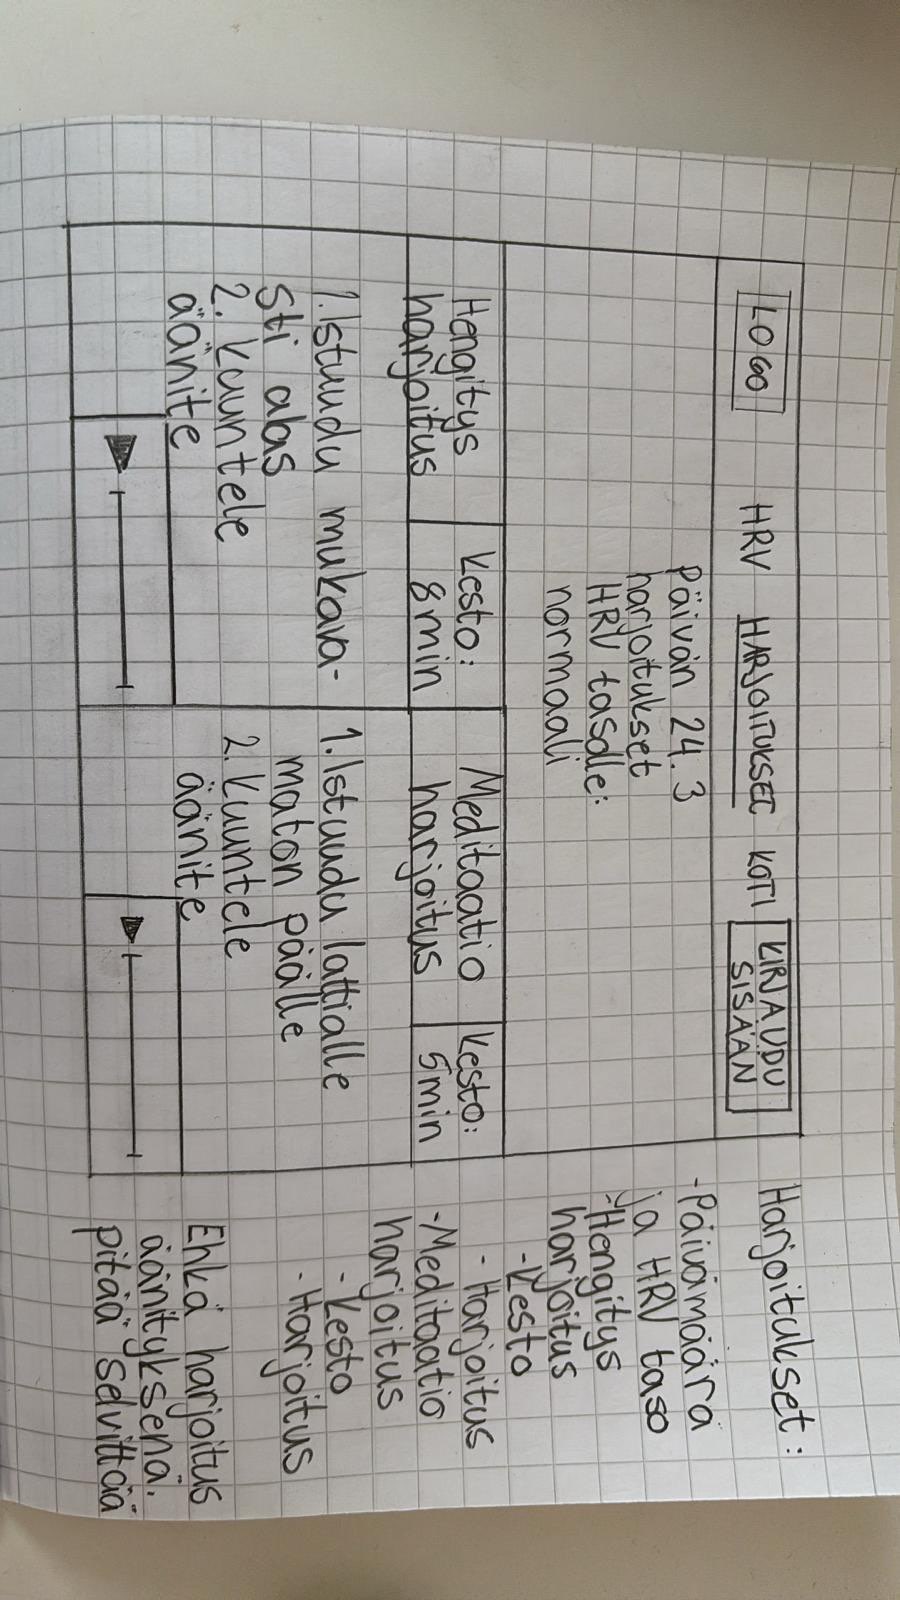 LOGO HRV HARJOITUKSET KOTI KIRJAUDU
SISÄÄN
Päivän 24.3
harjoitukset
HRV tasolle:
normaali
Hengitys
harjoitus
Kesto:
8min
Meditaatio
harjoitus
Kesto:
5min
1. Istuudu mukava-
sti alas
2. Kuuntele
äänite
1. Istuudu lattialle
maton päälle
2. Kuuntele
äänite
Harjoitukset:
-Päivämäärä
ja HRV taso
-Hengitys
harjoitus
-Kesto
- Harjoitus
-Meditaatio
harjoitus
- Kesto
- Harjoitus
Ehkä harjoitus
äänityksenä.
pitää selvittää